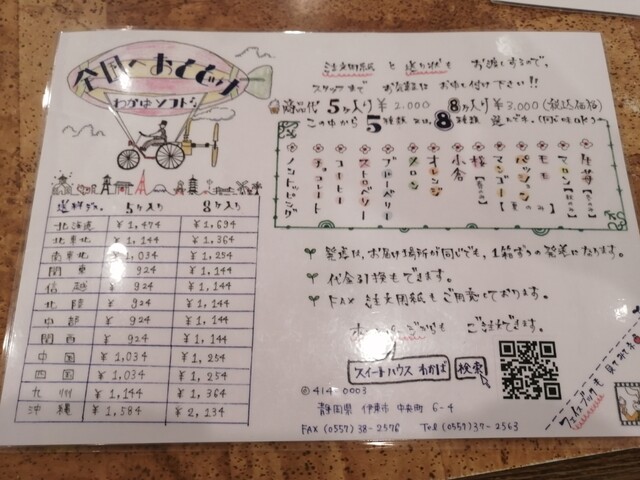 全国へおとどけ
わかばソフトを
注文用紙 と 送り状を お渡しするので、
スタッフまで お気軽に お申し付け下さい!!
商品代 5ヶ入り ¥2,000 8ヶ入り ¥3,000 (税込価格)
この中から 5種類 又は、8種類 選んで下さい。(同じ味OK)
ノントッピング
チョコレート
コーヒー
ストロベリー
ブルーベリー
メロン
オレンジ
小倉
桜【春のみ】
マンゴー
パッション【夏のみ】
モモ
マロン【秋のみ】
生姜【冬のみ】
送料です。 5ヶ入り 8ヶ入り
北海道 ¥1,474 ¥1,694
北東北 ¥1,144 ¥1,364
南東北 ¥1,034 ¥1,254
関東 ¥924 ¥1,144
信越 ¥924 ¥1,144
北陸 ¥924 ¥1,144
中部 ¥924 ¥1,144
関西 ¥924 ¥1,144
中国 ¥1,034 ¥1,254
四国 ¥1,034 ¥1,254
九州 ¥1,144 ¥1,364
沖縄 ¥1,584 ¥2,134
発送は、お届け場所が同じでも、1箱ずつの発送になります。
代金引換もできます。
FAX 注文用紙もご用意しております。
ホームページからも ご注文できます。
スイートハウス わかば 検索
〒414-0003
静岡県 伊東市 中央町 6-4
FAX (0557)38-2576 Tel (0557)37-2563
フェイスブックも
見てみてネ